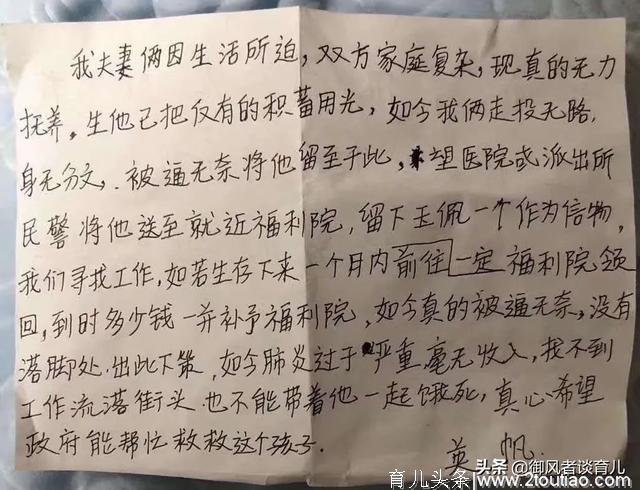 我夫妻俩因生活所迫，双方家庭复杂，现真的无力
抚养。生他已把仅有的积蓄用光，如今我俩走投无路，
身无分文，被逼无奈将他留至于此，望医院或派出所
民警将他送至就近福利院，留下玉佩一个作为信物，
我们寻找工作，如若生存下来一个月内前往一定福利院领
回，到时多少钱一并补予福利院，如今真的被逼无奈，没有
落脚处，出此下策，如今肺炎过于严重，毫无收入，找不到
工作流落街头也不能带着他一起饿死，真心希望
政府能帮忙救救这个孩子。
英帆
头条 @御风者谈育儿
育儿头条 www.2toutiao.com